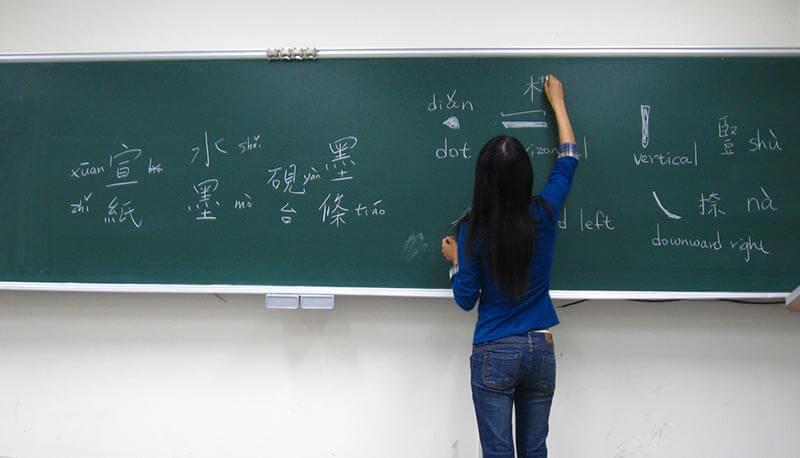 xuān 宣
zhǐ 紙
水 shuǐ
墨 mò
硯 yàn
台
墨
條 tiáo
diǎn
dot
vertical
豎 shù
left
捺 nà
downward right